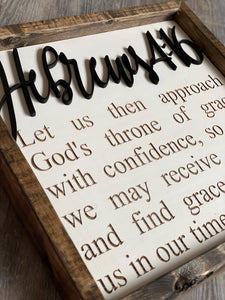 Hebrews 4:16
Let us then approach
God's throne of grace
with confidence, so
we may receive
and find grace
us in our time